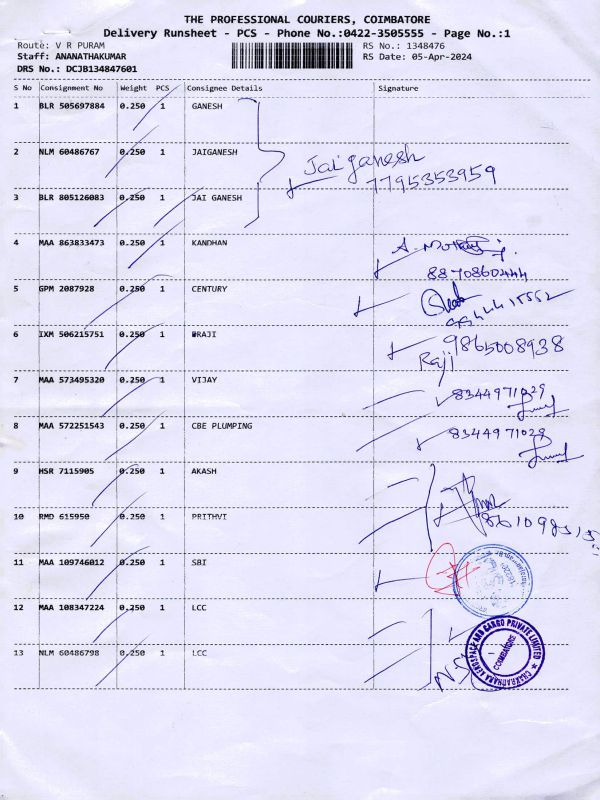 THE PROFESSIONAL COURIERS, COIMBATORE
Delivery Runsheet - PCS - Phone No.:0422-3505555 - Page No.:1
Route: V R PURAM
RS No.: 1348476
Staff: ANANATHAKUMAR
RS Date: 05-Apr-2024
DRS No.: DCJB134847601
S No Consignment No Weight PCS Consignee Details Signature
1 BLR 505697884 0.250 1 GANESH
2 NLM 60486767 0.250 1 JAIGANESH
Jai ganesh
7795353959
3 BLR 805126083 0.250 1 JAI GANESH
4 MAA 863833473 0.250 1 KANDHAN
8870860444
5 GPM 2087928 0.250 1 CENTURY
6 IXM 506215751 0.250 1 RAJI
9865008938
Raji
7 MAA 573495320 0.250 1 VIJAY 8344971029
8 MAA 572251543 0.250 1 CBE PLUMPING 8344971029
9 HSR 7115905 0.250 1 AKASH
10 RMD 615950 0.250 1 PRITHVI
11 MAA 109746012 0.250 1 SBI
12 MAA 108347224 0.250 1 LCC
13 NLM 60486798 0.250 1 LCC
CHAKRADHARA AEROSPACE AND CARGO PRIVATE LIMITED
COIMBATORE